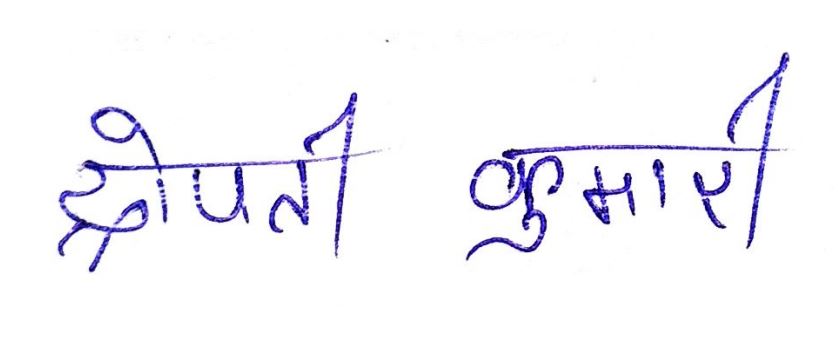 द्रोपती कुमारी